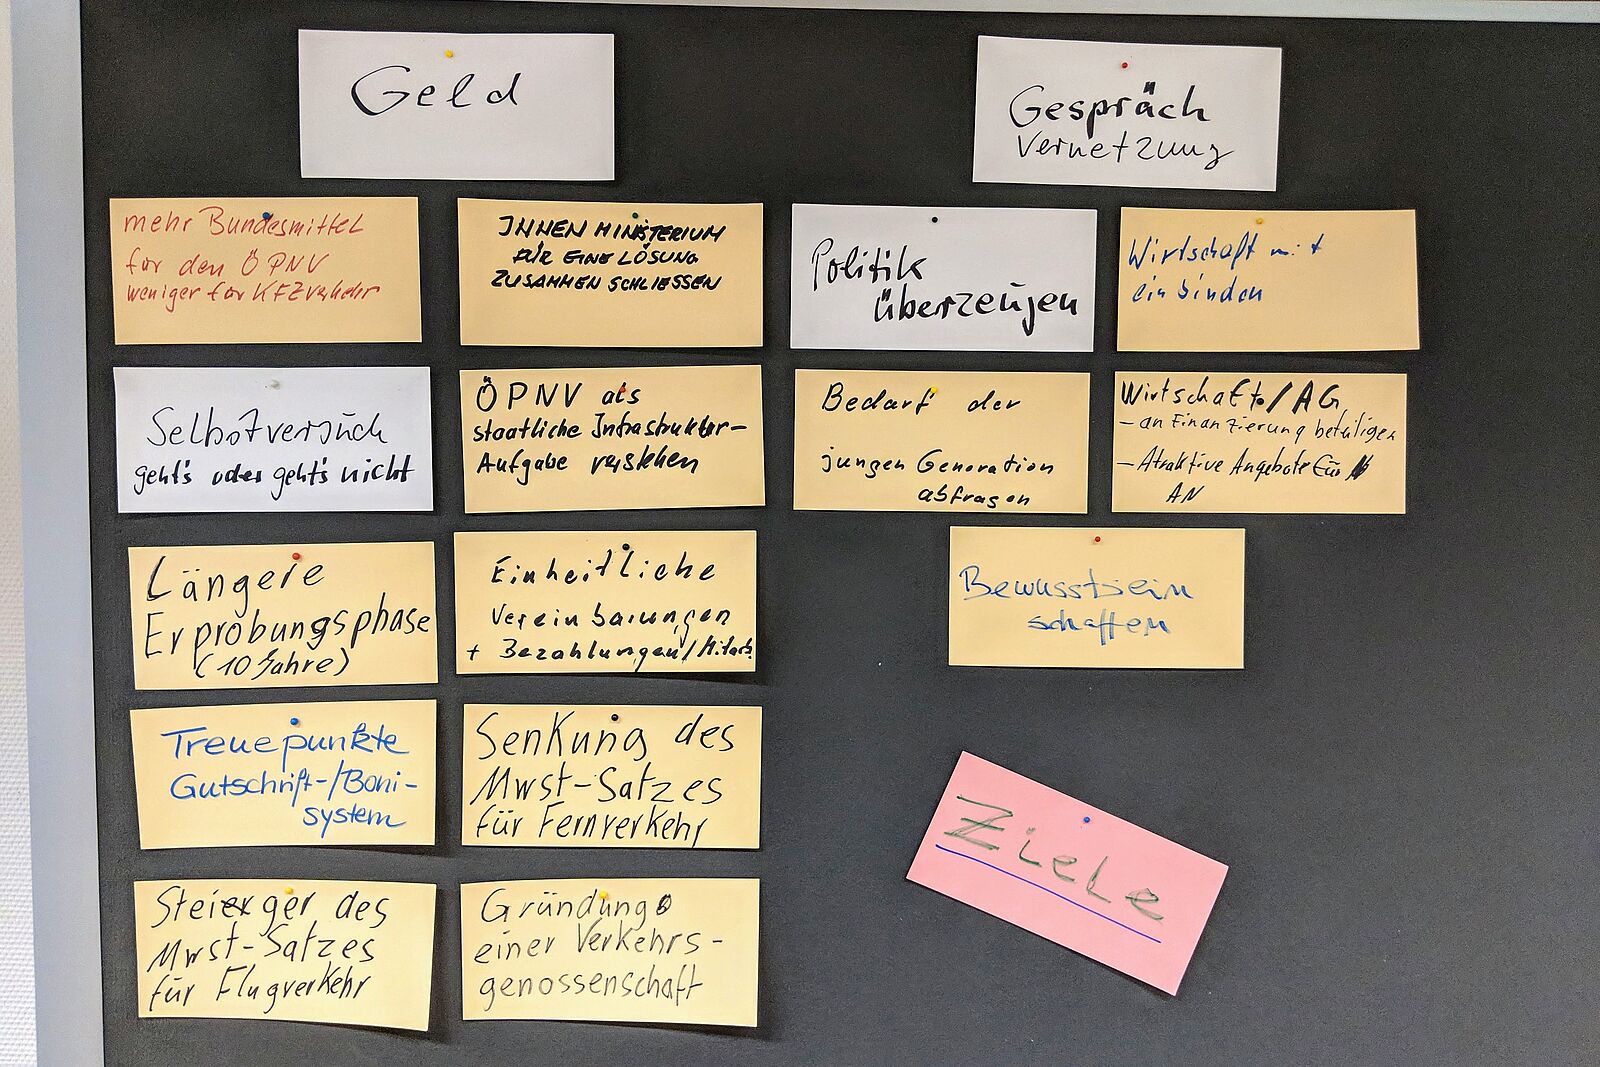 Geld
Gespräch
Vernetzung
mehr Bundesmittel
für den ÖPNV
weniger für KFZverkehr
INNEN MINISTERIUM
FÜR EINE LÖSUNG
ZUSAMMEN SCHLIESSEN
Politik
überzeugen
Wirtschaft mit
einbinden
Selbstversuch
geht's oder geht's nicht
ÖPNV als
staatliche Infrastruktur-
Aufgabe verstehen
Bedarf der
jungen Generation
abfragen
Wirtschaft/AG
- an Finanzierung beteiligen
- Atraktive Angebote für
AN
Längere
Erprobungsphase
(10 Jahre)
Einheitliche
Vereinbarungen
+ Bezahlungen/Mitarb.
Bewusstsein
schaffen
Treuepunkte
Gutschrift-/Boni-
system
Senkung des
Mwst-Satzes
für Fernverkehr
Ziele
des
Mwst-Satzes
für Flugverkehr
Gründung
einer Verkehrs-
genossenschaft